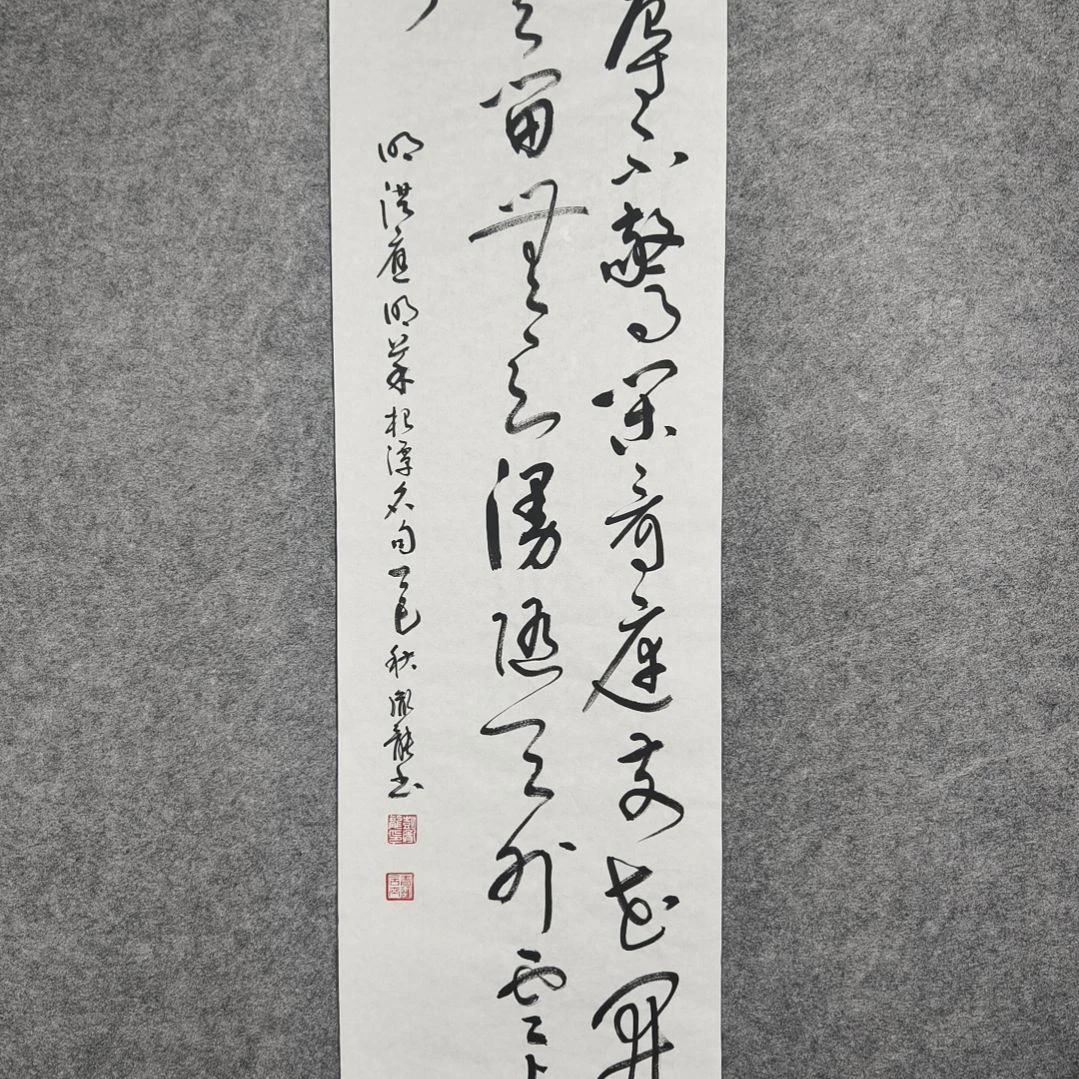 辱不驚閑看庭前花開
去留無意漫隨天外雲
明洪應明菜根譚名句乙巳秋胤龍書